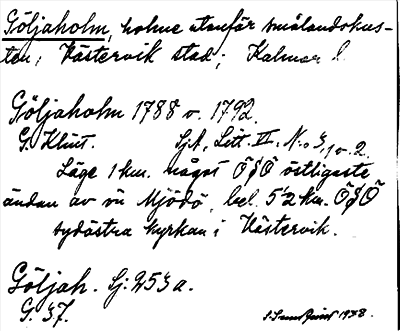 Göljaholm, holme utanför smålandskus-
ten; Västervik stad; Kalmar l.
Göljaholm 1788 o. 1792.
G. Klint. SjA, Litt. II. No 3, 1 o. 2.
Läge 1 km. något ÖSÖ östligaste
ändan av ön Mjödö, bel. 5½ km. ÖSÖ
sydöstra kyrkan i Västervik.
Göljah. Sj. 253 a.
G. 37. 1938.